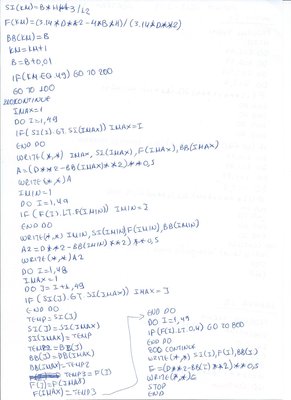 SI(KM)=B*H**3/12
F(KM)=(3.14*D**2-4*B*H)/(3.14*D**2)
BB(KM)=B
KM=KM+1
B=B+0,01
IF(KM.EQ.49) GO TO 200
GO TO 100
200CONTINUE
IMAX=1
DO I=1,49
IF(SI(I).GT.SI(IMAX)) IMAX=I
END DO
WRITE(*,*) IMAX, SI(IMAX), F(IMAX), BB(IMAX)
A=(D**2-BB(IMAX)**2)**0,5
WRITE(*,*)A
IMIN=1
DO I=1,49
IF (F(I).LT.F(IMIN)) IMIN=I
END DO
WRITE(*,*) IMIN, SI(IMIN) F(IMIN), BB(IMIN)
A2=(D**2-BB(IMIN)**2)**0,5
WRITE(*,*)A2
DO I=1,48
IMAX=I
DO J=I+1,49
IF (SI(J).GT.SI(IMAX)) IMAX=J
END DO
TEMP=SI(I)
SI(I)=SI(IMAX)
SI(IMAX)=TEMP
TEMP2=BB(I)
BB(I)=BB(IMAX)
BB(IMAX)=TEMP2
TEMP3=F(I)
F(I)=F(IMAX)
F(IMAX)=TEMP3
END DO
DO I=1,49
IF(F(I).LT.0,4) GO TO 800
END DO
800 CONTINUE
WRITE(*,*) SI(I),F(I),BB(I)
G=(D**2-BB(I)**2)**0,5
WRITE(*,*)G
STOP
END